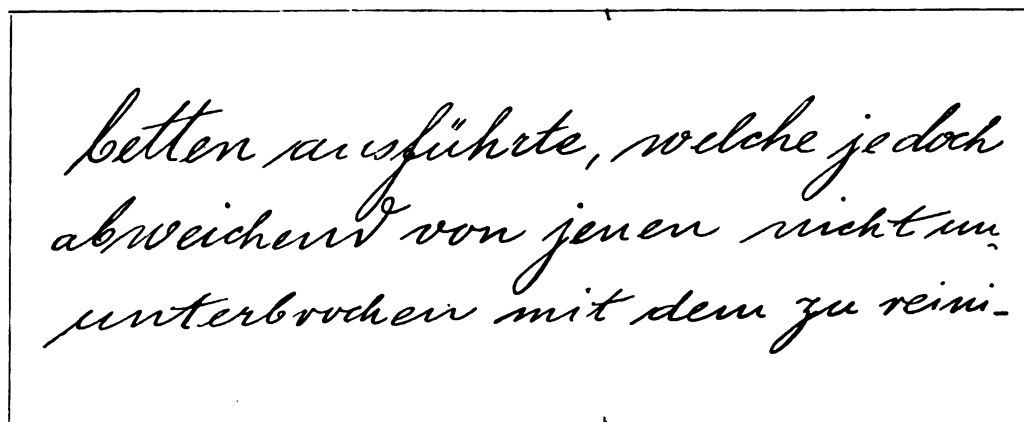 betten ausführte, welche jedoch
abweichend von jenen nicht un-
unterbrochen mit dem zu reini-